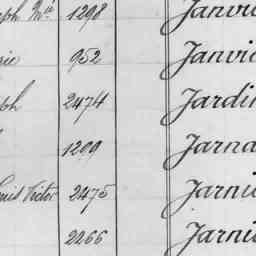 eph Mie 1298 Janvi
rie 952 Janvi
ph 2474 Jardin
1299 Jarna
ouis Victor 2475 Jarni
2266 Jarni